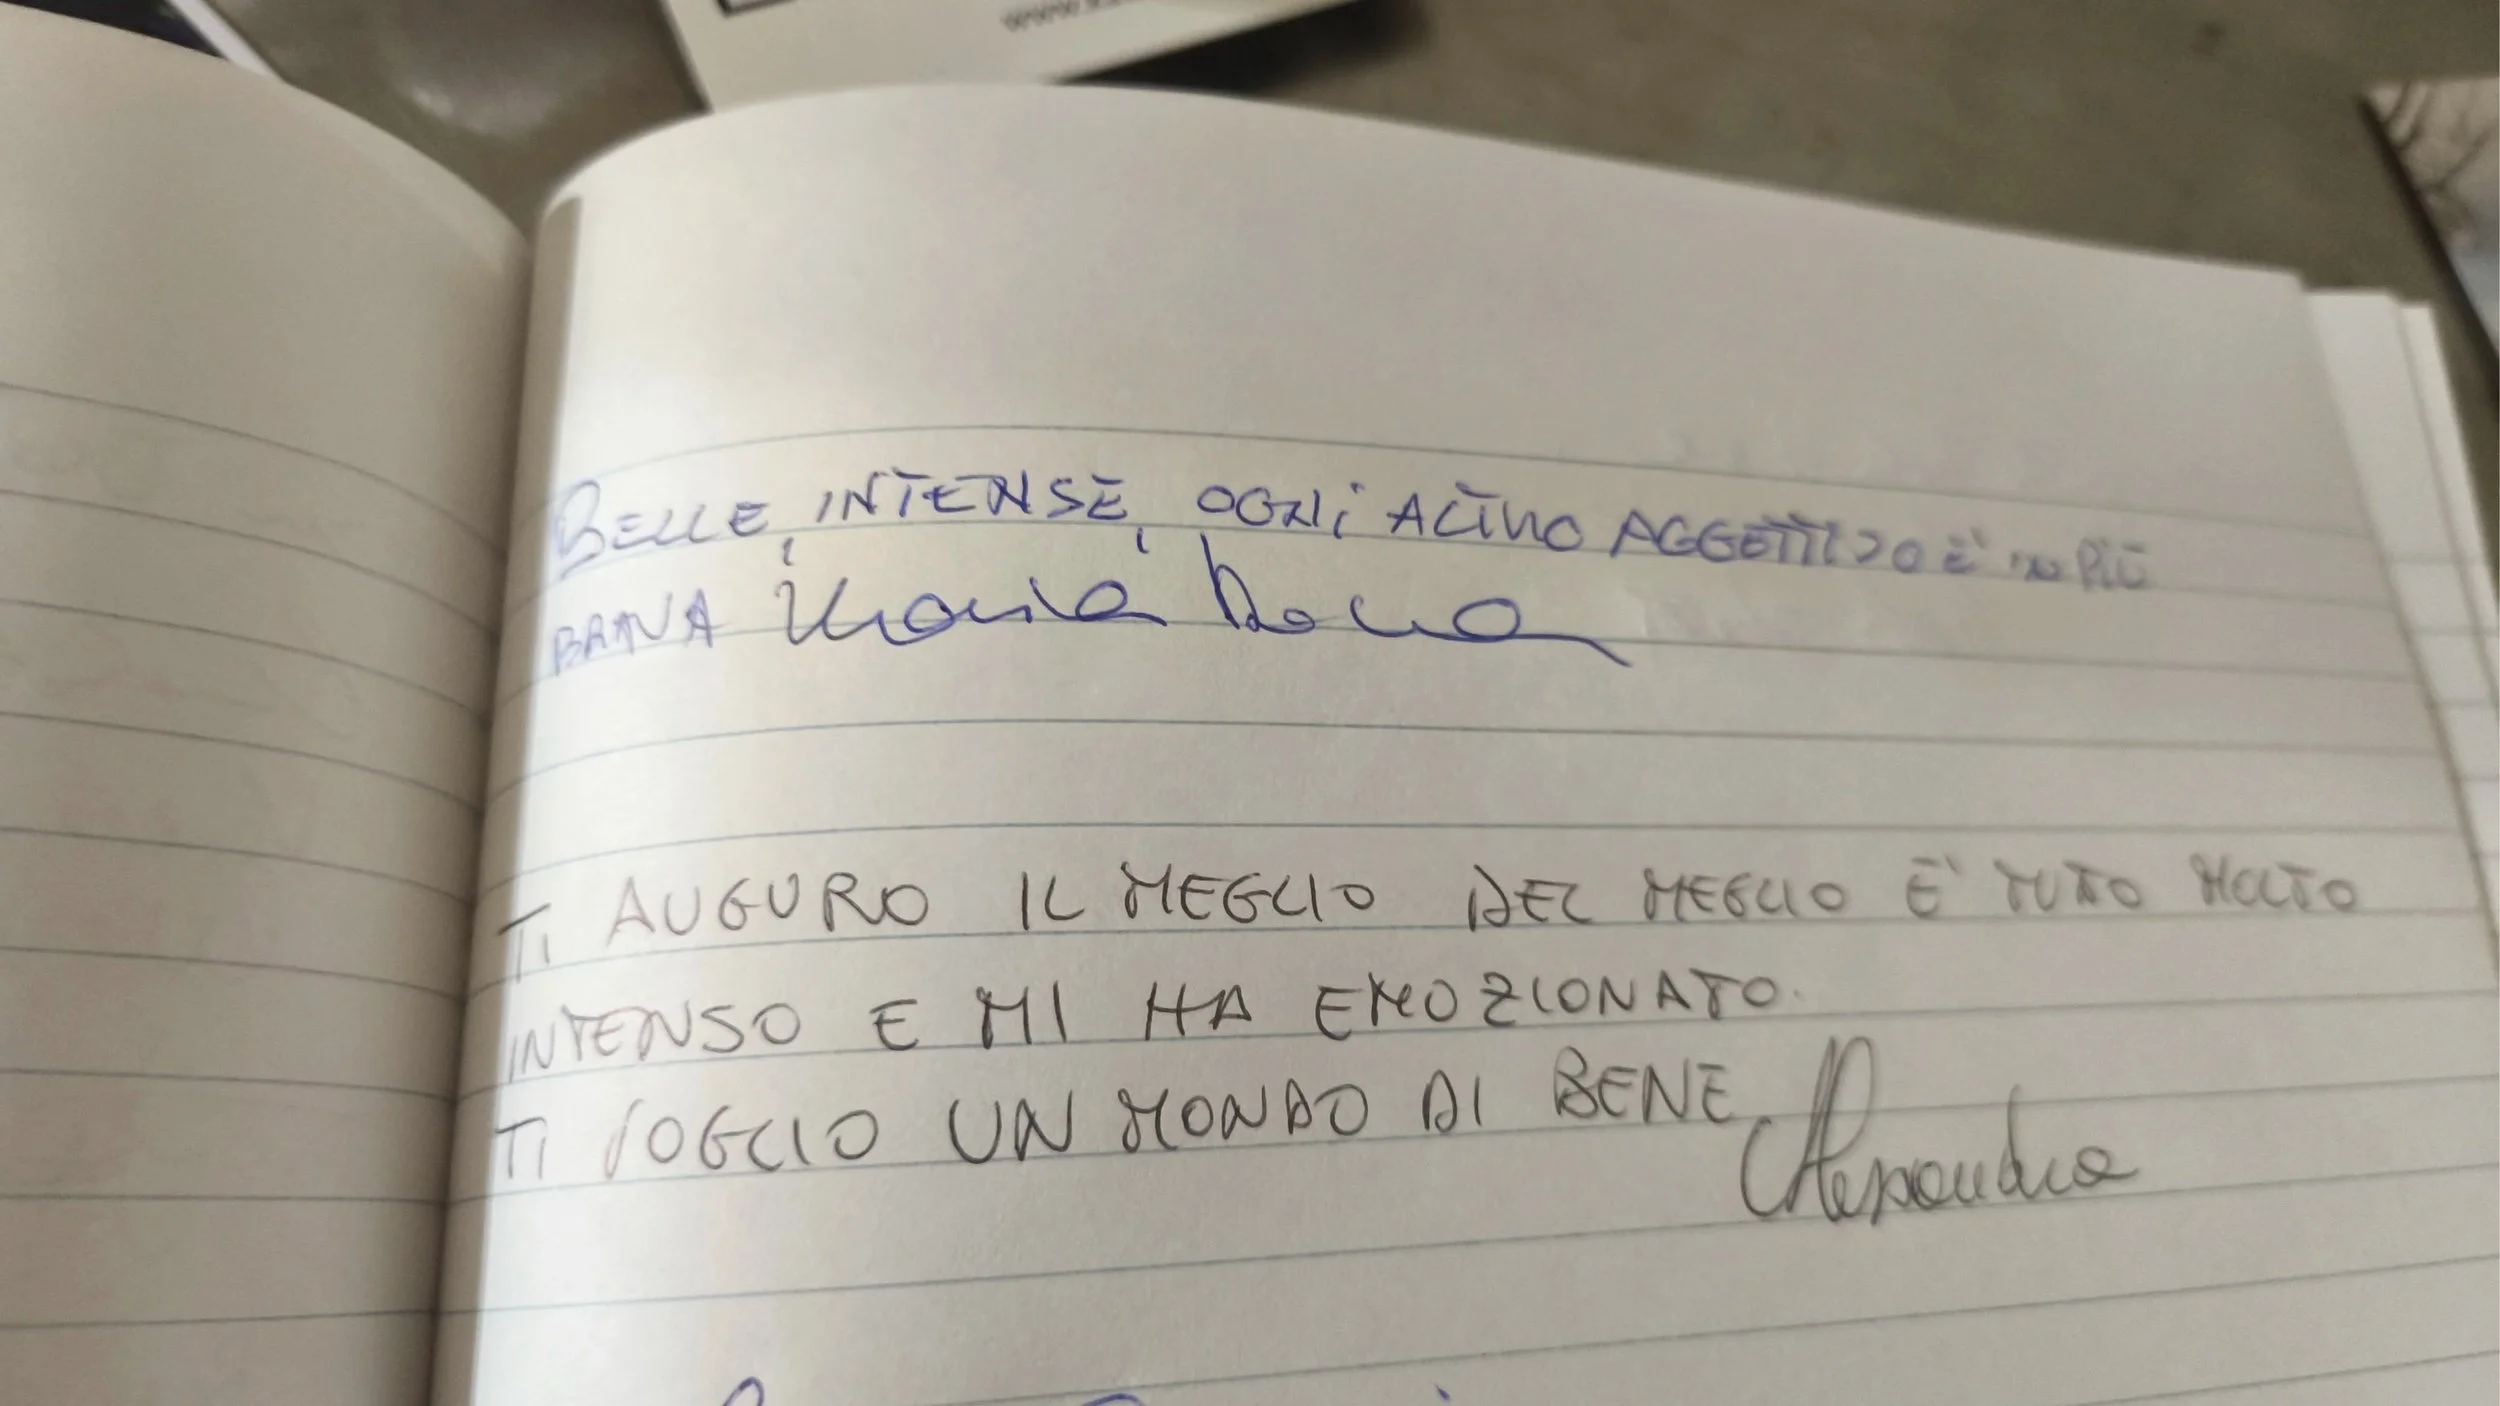 www.
BELLE, INTENSE, OGNI ALTRO AGGETTIVO È IN PIÙ
BRAVA Maria
TI AUGURO IL MEGLIO DEL MEGLIO È TUTTO MOLTO
INTENSO E MI HA EMOZIONATO.
TI VOGLIO UN MONDO DI BENE
Alessandra